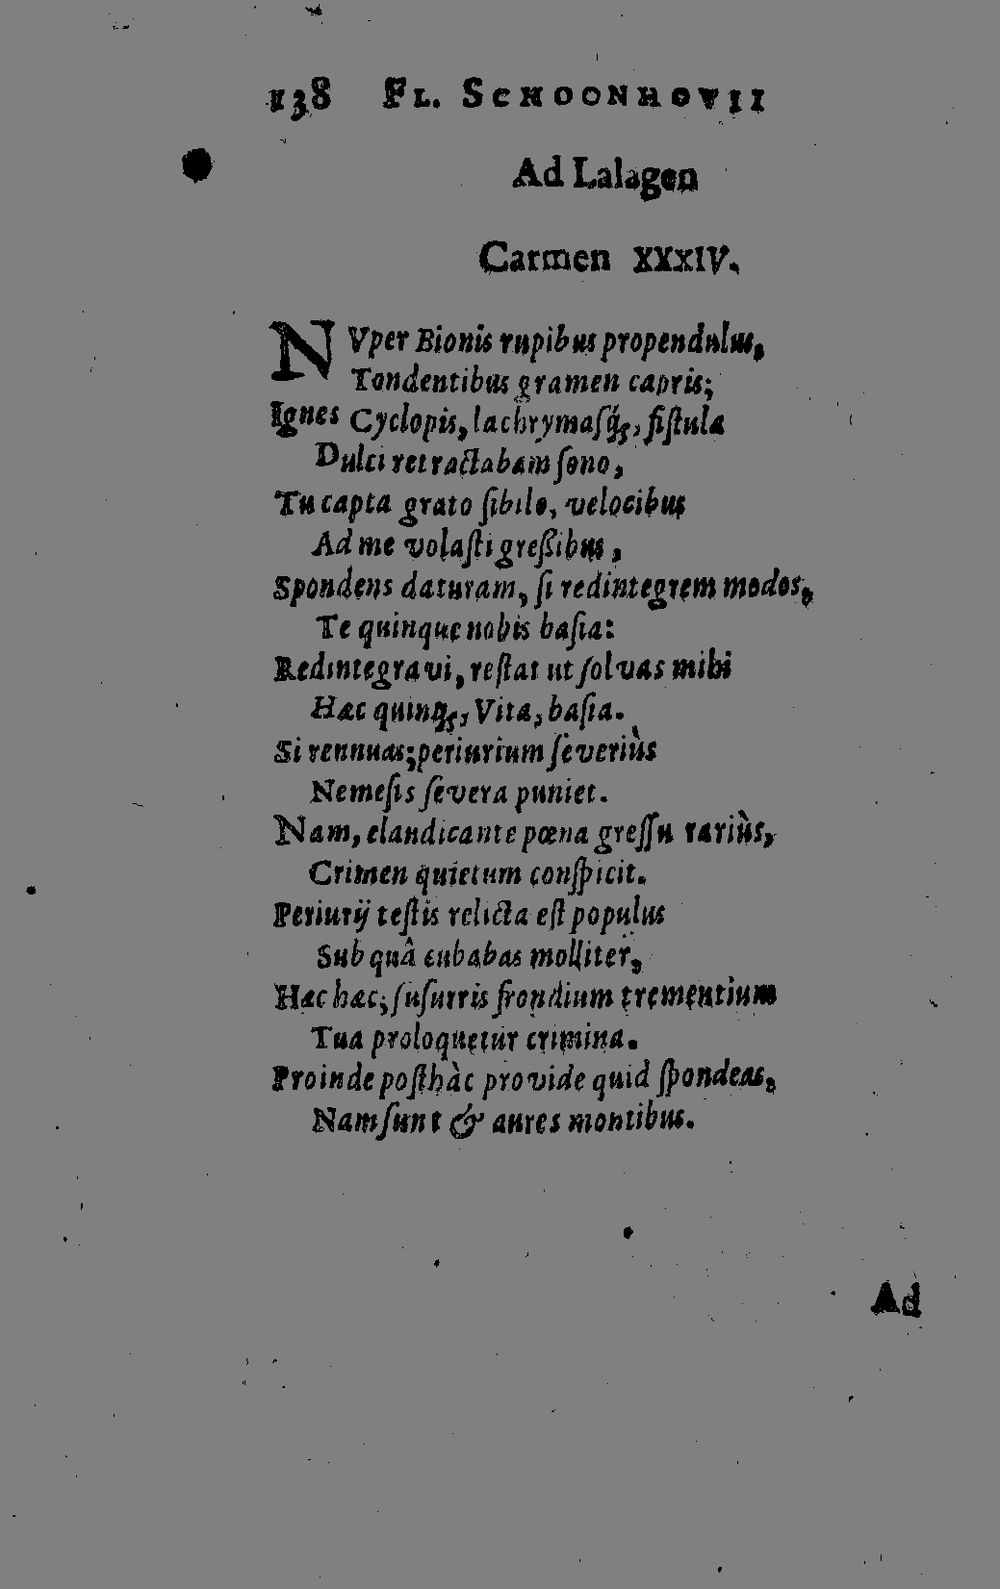 138 FL. SCHOONHOVII
Ad Lalagen
Carmen XXXIV.
NVper Bionis rupibus propendulus,
Tondentibus gramen capris;
Ignes Cyclopis, lachrymaſq́;, fiſtula
Dulci retractabam ſono,
Tu capta grato ſibilo, velocibus
Ad me volaſti greßibus,
Spondens daturam, ſi redintegrem modos,
Te quinque nobis baſia:
Redintegravi, reſtat ut ſolvas mihi
Hæc quinq;, Vita, baſia.
Si rennuas; periurium ſeveriùs
Nemeſis ſevera puniet.
Nam, claudicante pœna greſſu rariùs,
Crimen quietum conſpicit.
Periurij teſtis relicta eſt populus
Sub quâ cubabas molliter,
Hæc hæc; ſuſurris frondium trementium
Tua proloquetur crimina.
Proinde poſthàc provide quid ſpondeas,
Nam ſunt & aures montibus.
Ad